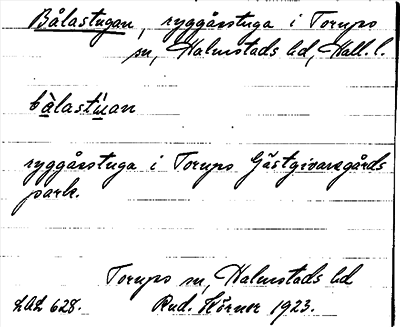 Bålastugan, ryggåsstuga i Torups
sn, Halmstads hd, Hall. l.
bàlastùan
ryggåsstuga i Torups Gästgivaregårds
park.
Torups sn, Halmstads hd
LAL 628. Rud. Körner 1923.